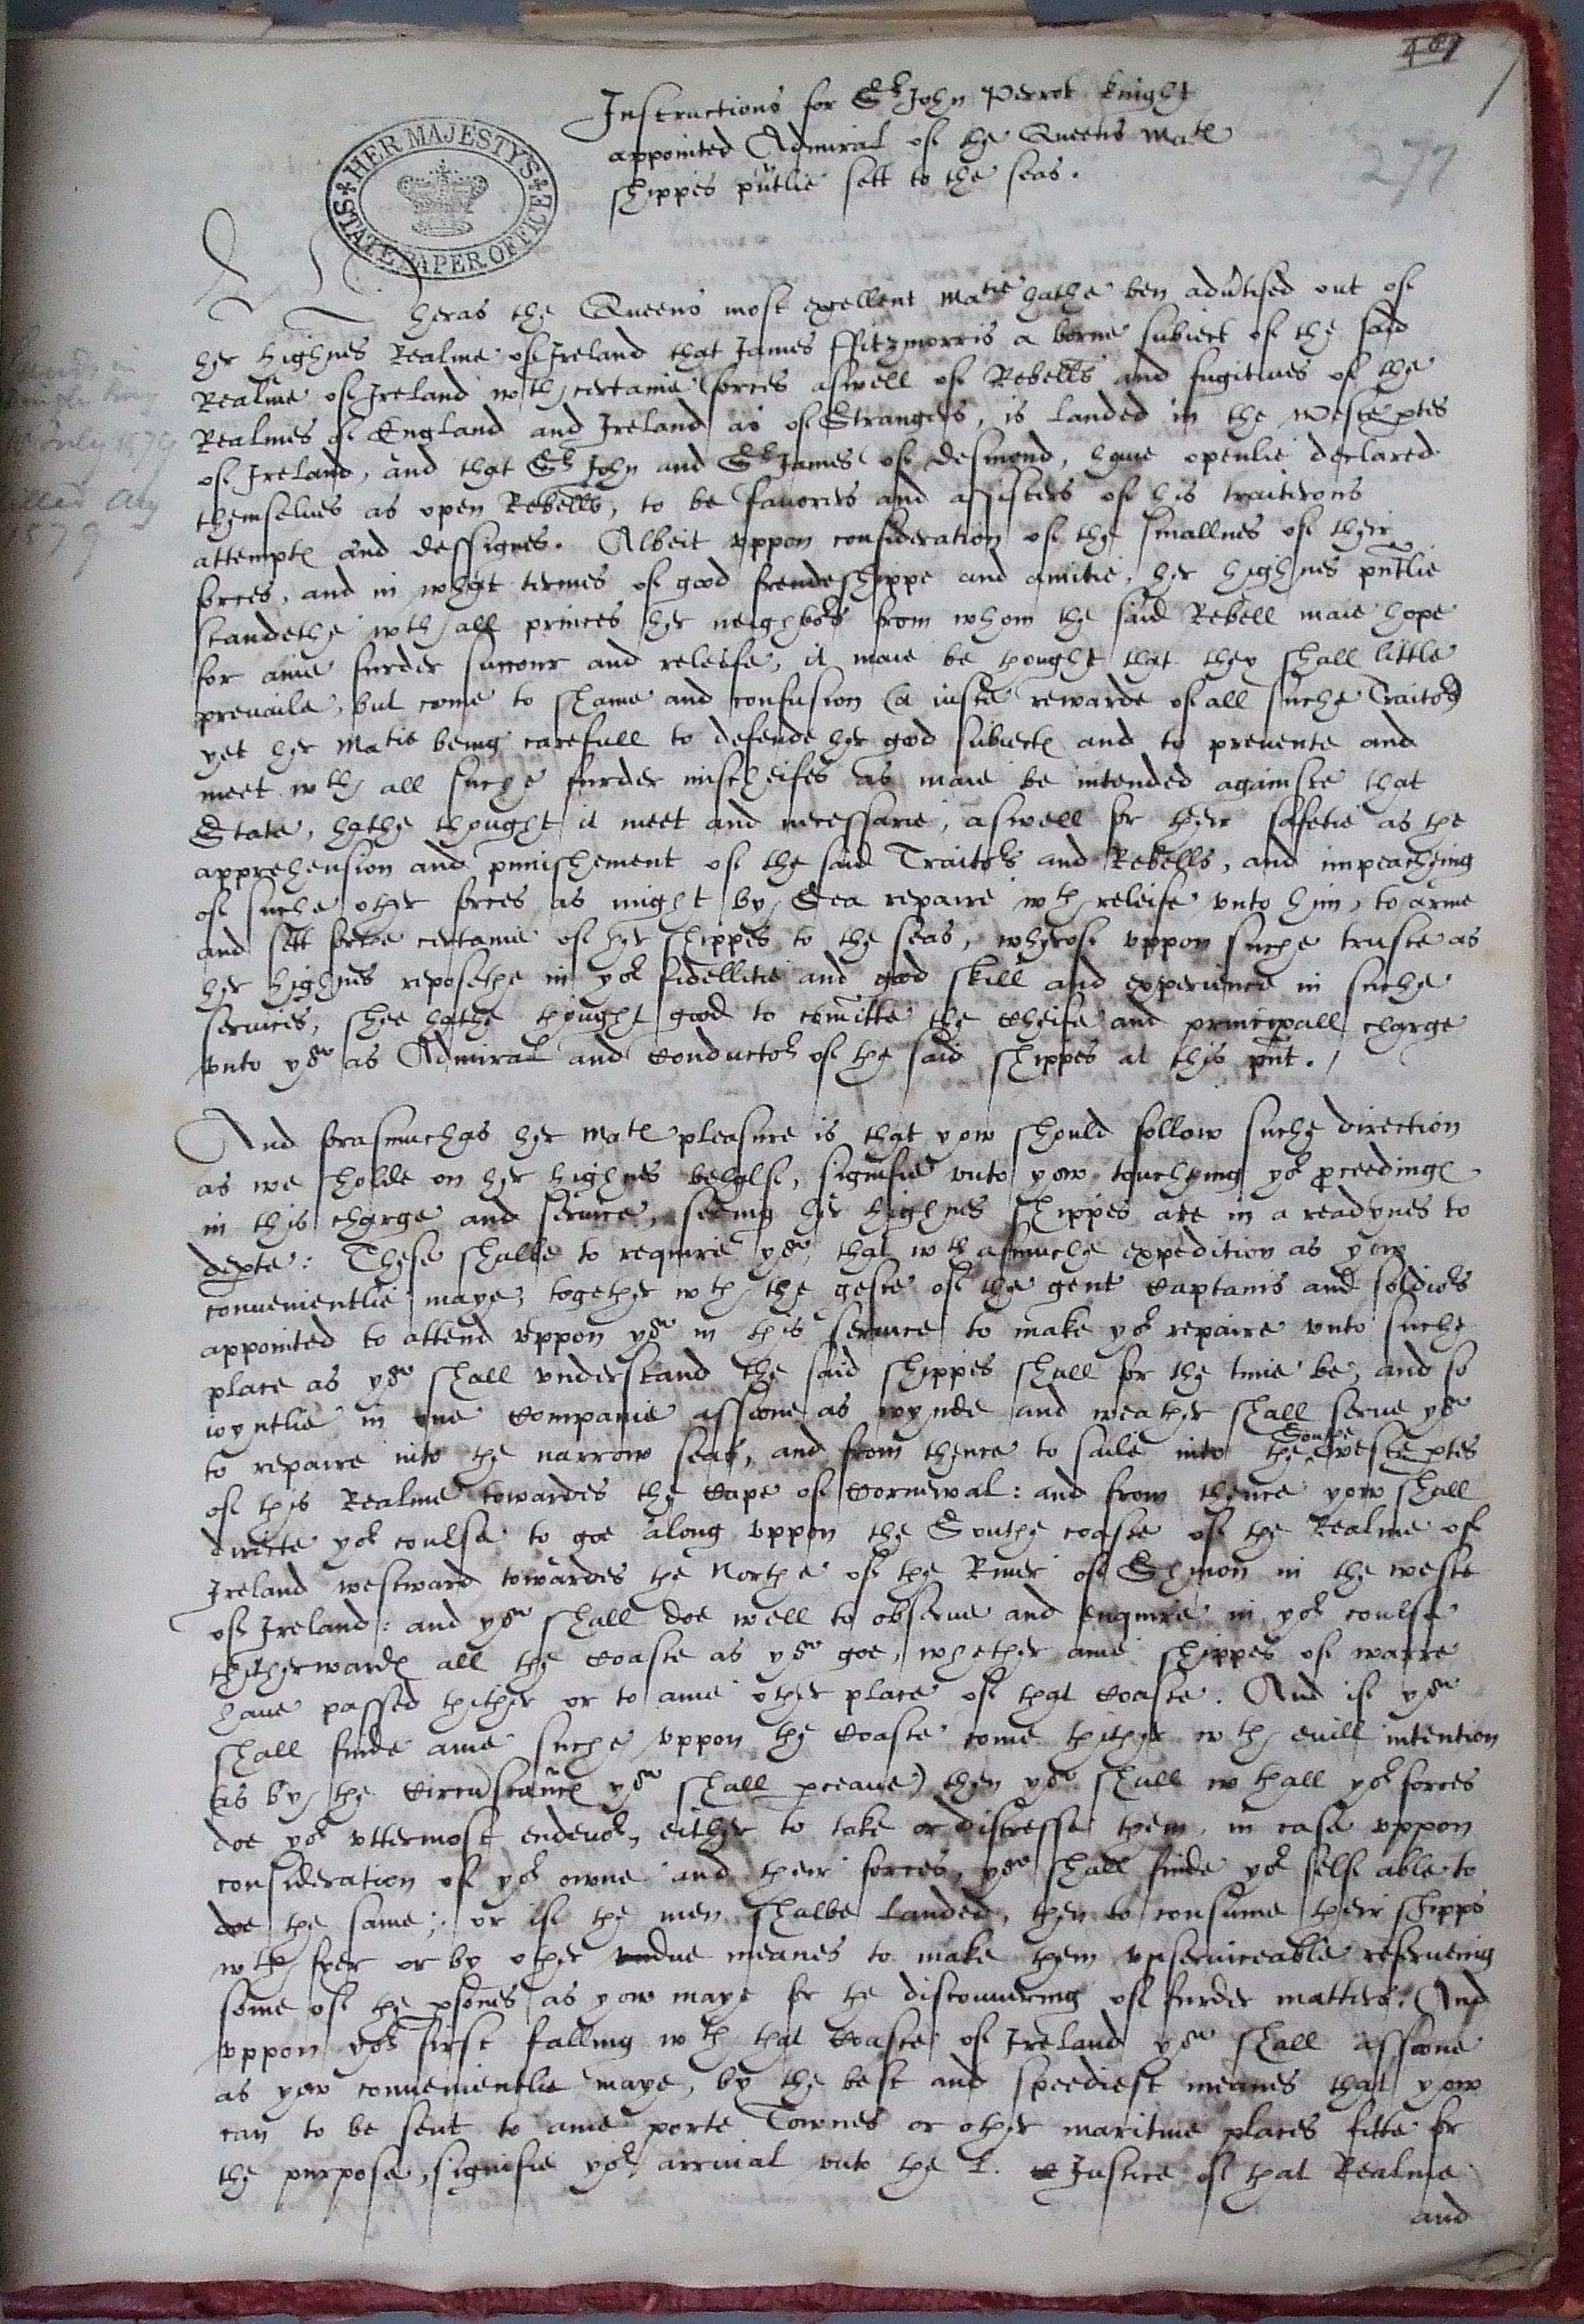 407
277
Instructions for Sr John Perrot knight
appointed Admiral of the Queens Mats
shippes pñtlie sett to the seas.
HER MAJESTY'S
STATE PAPER OFFICE
Wheras the Queens most excellent Matie hathe ben adũtised out of
her highnes Realme of Ireland that James ffitzmorris a borne subiect of the said
Realme of Ireland wth certaine forces aswell of Rebells and fugitiues of the
Realmes of England and Ireland as of Strangers, is landed in the weste ptes
of Ireland, and that Sr John and Sr James of Desmond, haue openlie declared
themselues as open Rebells, to be fauorers and assisters of his traiterous
attemptes and dessignes. Albeit vppon consideration of the smallnes of their
forces, and in what termes of good frendeshippe and amitie, her highnes pñtlie
standethe wth all princes her neighbors from whom the said Rebell maie hope
for anie furder succour and releife, it maie be thought that they shall little
prevaile, but come to shame and confusion (a iuste rewarde of all suche Traitors)
yet her Matie being carefull to defende her good subiectes and to preuente and
meet wth all suche furder mischeifes as maie be intended againste that
State, hathe thought it meet and necessarie, aswell for their safetie as the
apprehension and punishement of the said Traitors and Rebells, and impeaching
of suche other forces as might by Sea repaire wth releife vnto him, to arme
and sett forthe certaine of her shippes to the seas, wherof vppon suche truste as
her highnes reposethe in yor fidellitie and good skill and experience in suche
services, shee hathe thought good to comitte the cheife and principall charge
vnto you as Admiral and Conductor of the said shippes at this pñt.
And forasmuchas her Mats pleasure is that yow should follow suche direction
as we sholde on her highnes behalfe, signifie vnto yow touchyng yor proceedinges
in this charge and service, seeing her highnes shippes are in a readynes to
depte: These shalbe to require you, that wth asmuche expedition as yow
convenientlie maye, together wth the reste of the gent Captains and soldiors
appointed to attend vppon you in this service to make yor repaire vnto suche
place as you shall vnderstand the said shippes shall for the time be, and so
ioyntlie in one Companie assoone as wynde and weather shall serue you
to repaire into the narrow seas, and from thence to saile into the Southe weste ptes
of this Realme towardes the Cape of Cornewal: and from thence yow shall
directe yor coulse to goe along vppon the Southe coaste of the Realme of
Ireland westward towardes the Northe of the River of Shenon in the weste
of Ireland: and you shall doe well to observe and enquire in yor coulse
thitherwardes all the Coaste as you goe, whether anie shippes of warre
haue passed thither or to anie other place of that Coaste. And if you
shall finde anie suche vppon the Coaste come thither wth euill intention
(as by the Circũstances you shall pceaue) then you shall wthall yor forces
doe yor vttermost endevor, either to take or distresse them, in case vppon
consideration of yor owne and their forces, you shall finde yor self able to
doe the same; or if the men shalbe landed, then to consume their shipps
wth fyer or by other vndue meanes to make them vnserviceable reseruing
some of the psones as yow maye for the discouuering of furder matters. And
vppon yor first falling wth that Coaste of Ireland you shall assoone
as yow convenientlie maye, by the best and speediest meanes that yow
can to be sent to anie porte Townes or other maritime places fitte for
the purpose, signifie yor arrival vnto the L. Justice of that Realme
and